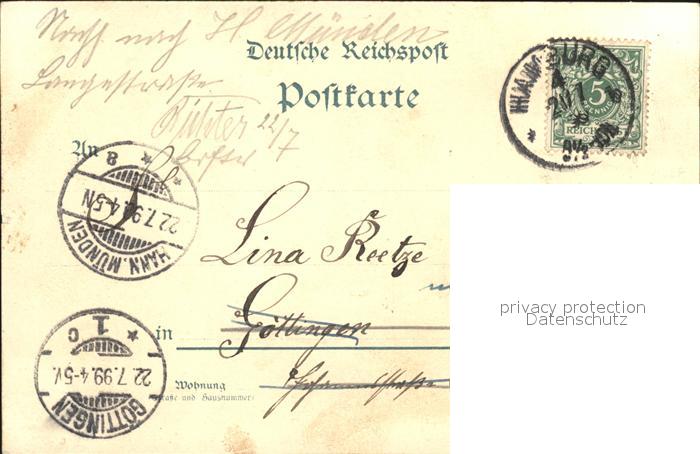 Nach nach H Münden
Deutsche Reichspost
Langestraße
Postkarte
Richter 22/7
HAMBURG
1
5
PFENNIG
REICHS
An
* a *
22.7.99.4-5N
HANN. MÜNDEN
Lina
in Göttingen
* 1 c
22.7.99.4-5V.
GÖTTINGEN
Wohnung
(Straße und Hausnummer)
Johannisstraße
privacy protection
Datenschutz